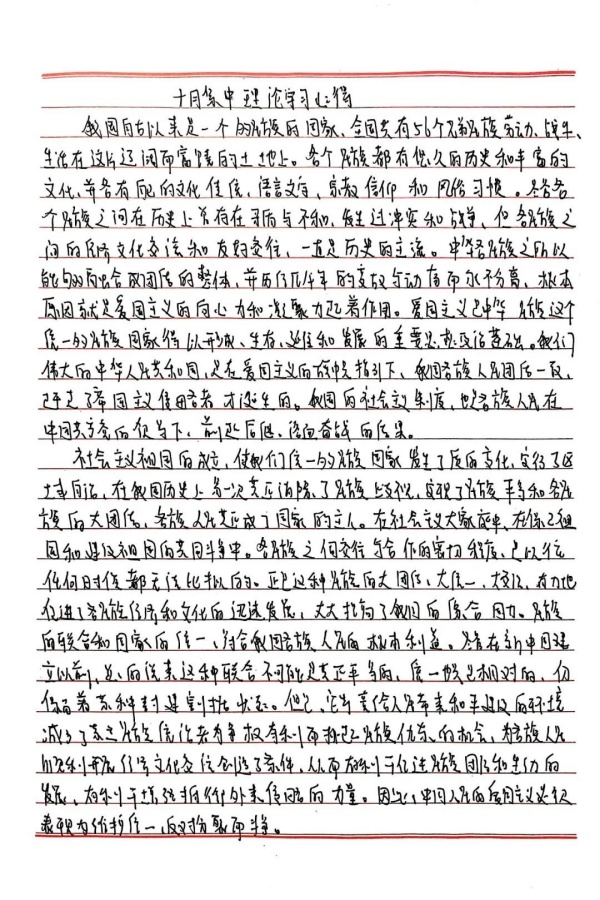 十月集中理论学习心得
我国自古以来是一个多民族的国家、全国共有56个兄弟民族劳动、战斗、
生活在这片辽阔而富饶的土地上。各个民族都有悠久的历史和丰富的
文化,并各有自己的文化传统、语言文字、宗教信仰和风俗习惯。尽管各
个民族之间在历史上曾存在矛盾与不和,发生过冲突和战争,但各民族之
间的经济文化交流和友好交往,一直是历史的主流。中华各民族之所以
能够结合成团结的整体,并历经几千年的变故与动荡而永不分离,根本
原因就是爱国主义的向心力和凝聚力起着作用。爱国主义是中华民族这个
统一的多民族国家得以形成、生存、延续和发展的重要思想政治基础。我们
伟大的中华人民共和国,是在爱国主义的旗帜指引下,我国各族人民团结一致,
赶走了帝国主义侵略者才诞生的。我国的社会主义制度,也是各族人民在
中国共产党的领导下,前赴后继、浴血奋战的结果。
社会主义祖国的成立,使我们统一的多民族国家发生了质的变化,实行了区
域自治,在我国历史上第一次真正消除了民族歧视,实现了民族平等和各民
族的大团结,各族人民真正成了国家的主人。在社会主义大家庭中,在保卫祖
国和建设祖国的共同斗争中。各民族之间交往与合作的密切程度,是以往
任何时候都无法比拟的。正是这种民族的大团结、大统一、大交流,有力地
促进了各民族经济和文化的迅速发展,大大提高了我国的综合国力。民族
的联合和国家的统一,符合我国各族人民的根本利益。尽管在新中国建
立以前,总的说来这种联合不可能是真正平等的,统一也是相对的,仍
保留着某种封建割据状态。但是,它毕竟给人民带来和平建设的环境
减少了某些民族统治者为争权夺利而挑起民族仇杀的机会,为各族人民
顺利开展经济文化交流创造了条件,从而有利于促进民族团结和生产的
发展,有利于增强抵御外来侵略的力量。因此,中国人民的爱国主义必须
表现为维护统一,反对分裂而斗争。